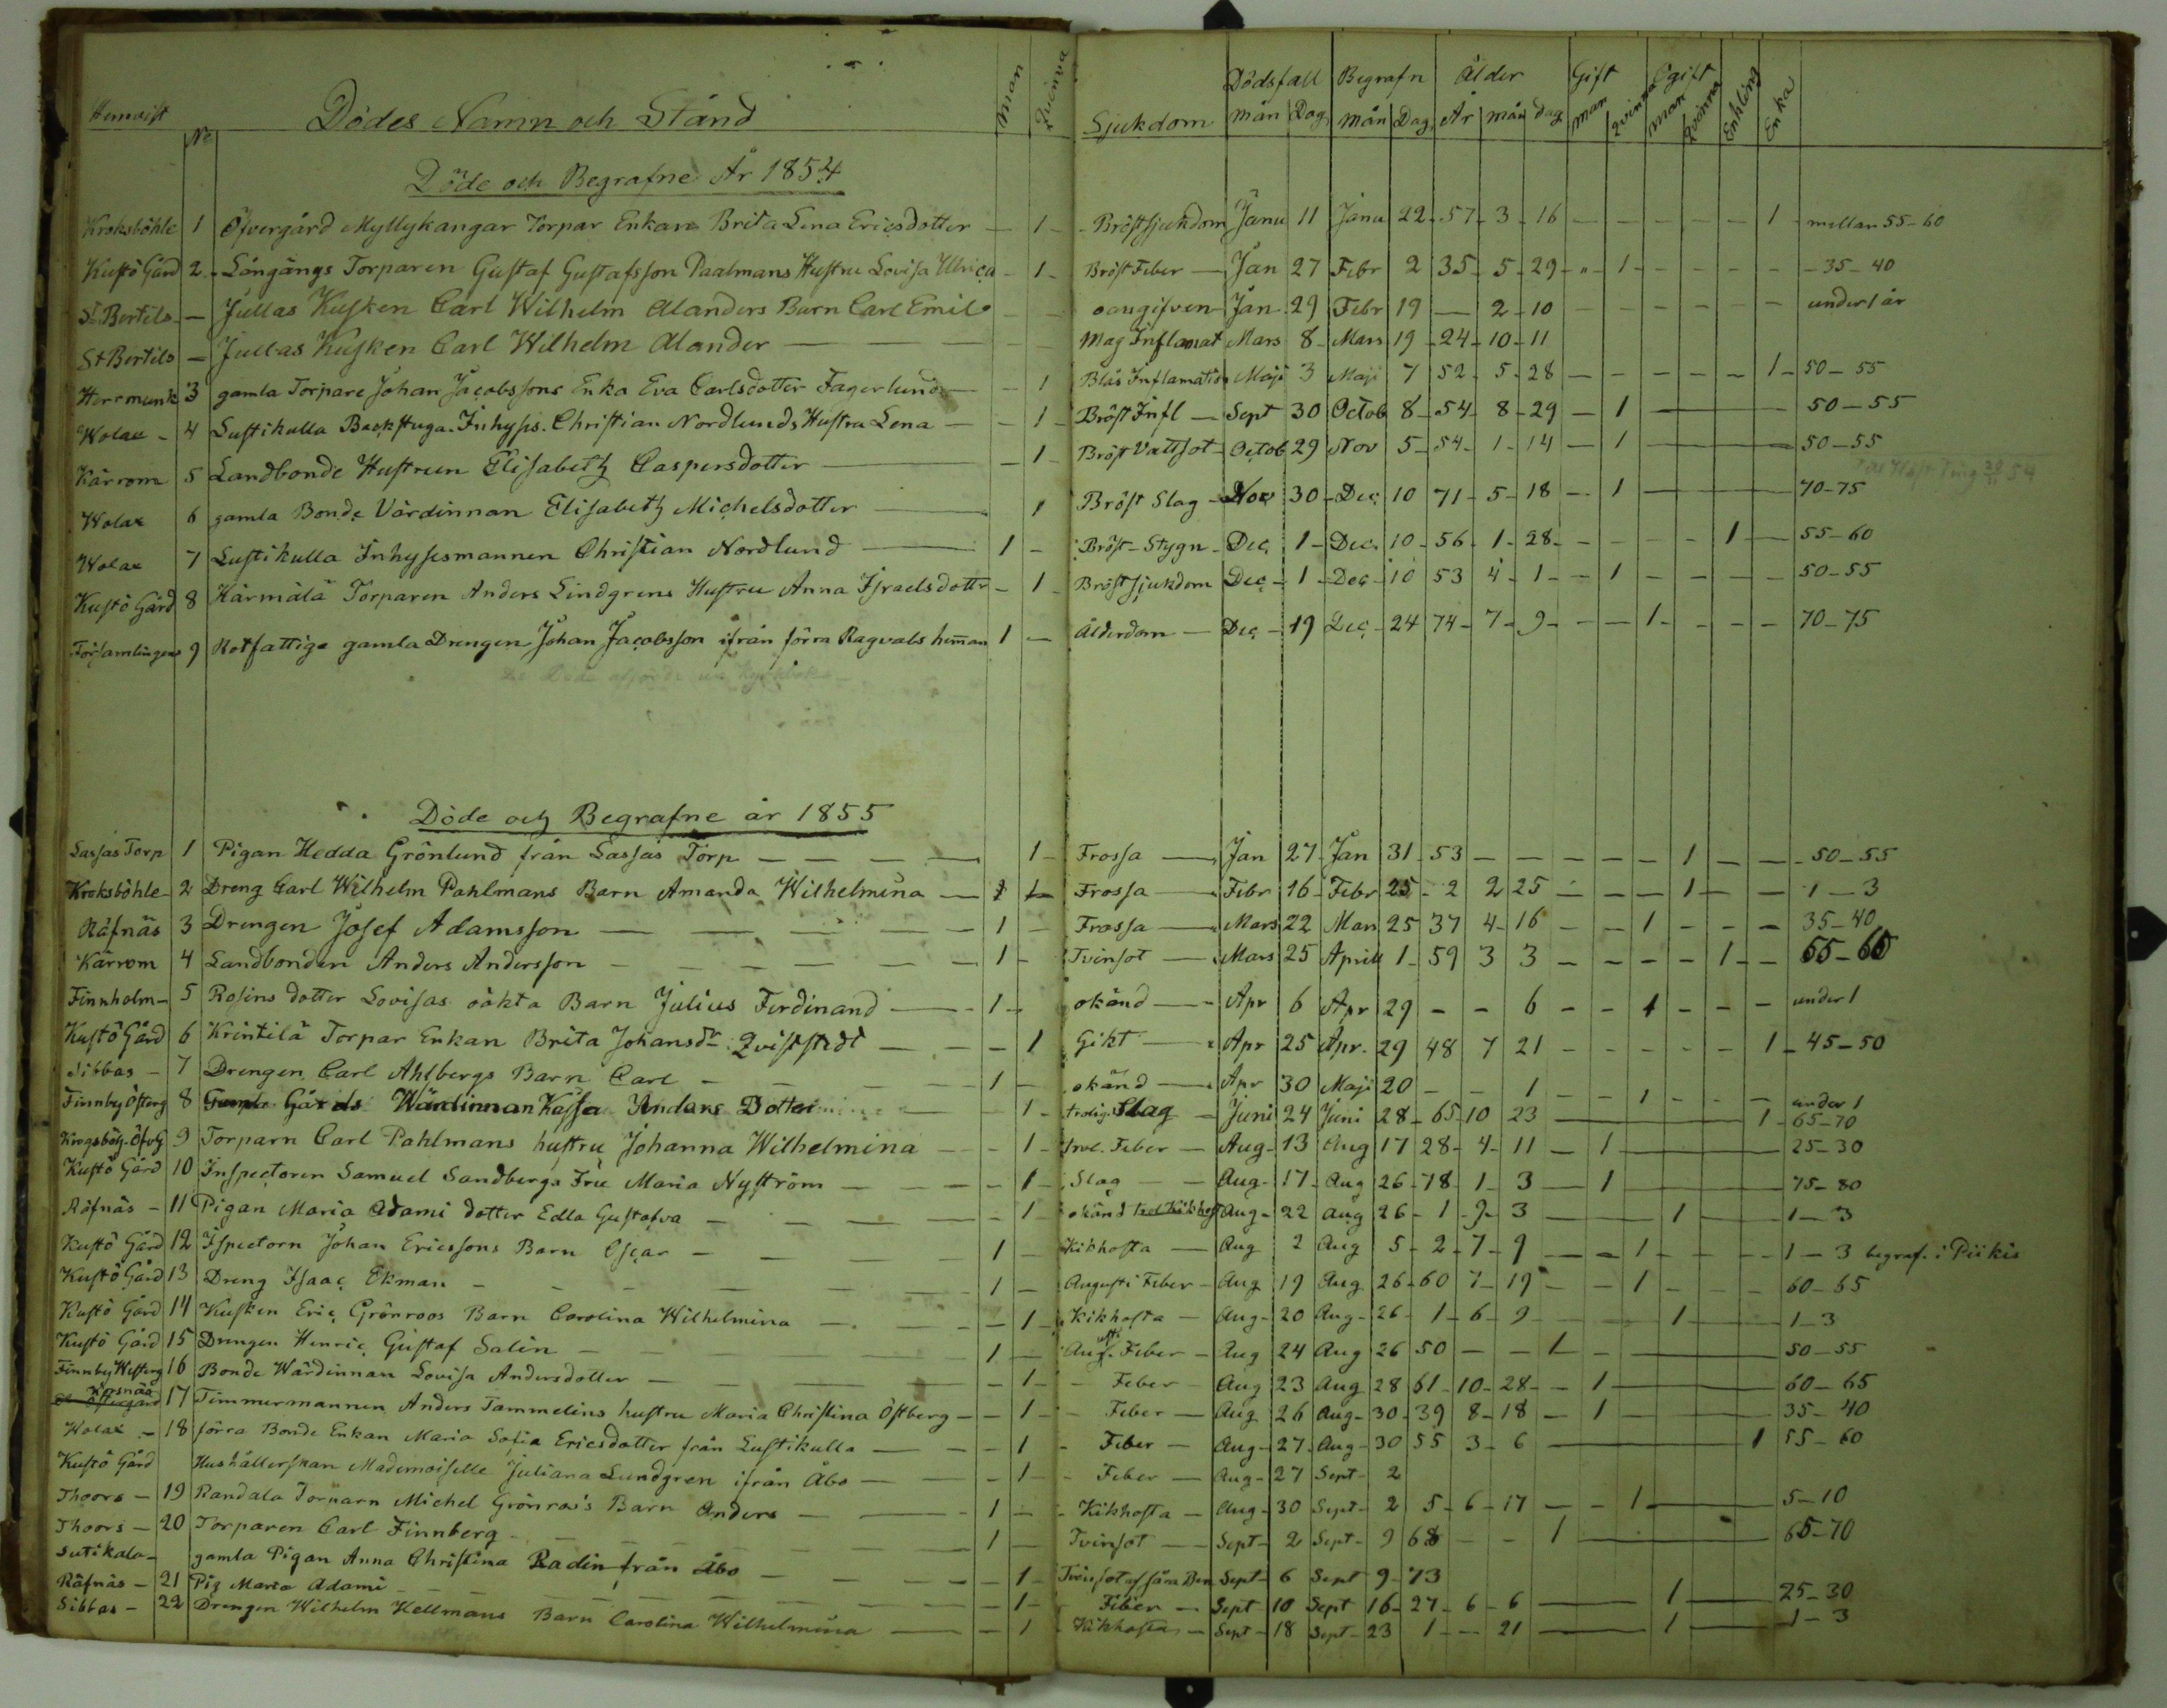 Hemvist No Dödes Namn och Stånd Man Qvinna Sjukdom Dödsfall Mån Dag Begrafn Mån Dag Ålder År mån dag Gift man qvinna Ogift man Qvinna Enkling Enka
Döde och Begrafne År 1854
Kroksböhle 1 Öfvergård Myllykangar Torpar Enkan Brita Lena Ericsdotter — 1 - Bröstsjukdom Janu 11 Janu 22 - 57 - 3 - 16 — — — — — 1 - mellan 55-60
Kustö Gård 2 - Långängs Torparen Gustaf Gustafsson Paalmans Hustru Lovisa Ulrica - 1 - Bröst Feber — Jan 27 Febr 2 35 - 5 - 29 - „ - 1 - - - - - 35-40
St Bertils - — Jullas Kusken Carl Wilhelm Alanders Barn Carl Emil oangifven - Jan 29 Febr 19 — 2 - 10 under 1 år
St Bertils — Jullas Kusken Carl Wilhelm Alander — Mag Inflamat Mars 8 - Mars 19 - 24 - 10 - 11
Herrmunk 3 gamla Torpare Johan Jacobssons Enka Eva Carlsdotter Fagerlund — - 1 Blås Inflamation Maji 3 Maji 7 52 - 5 - 28 — — — — — 1 - 50-55
Wolax - 4 Lustikulla Backstuga. Inhyses. Christian Nordlunds Hustru Lena — - 1 - Bröst Infl — Sept 30 Octob 8 - 54 - 8 - 29 — 1 — 50-55
Kärrom 5 Landbonde Hustrun Elisabeth Caspersdotter — 1 - Bröst Vattsot - Octob 29 Nov 5 - 54 - 1 - 14 — 1 — 50-55
Wolax 6 gamla Bonde Värdinnan Elisabeth Michelsdotter — 1 Bröst Slag - Nov 30 - Dec 10 71 - 5 - 18 — 1 — 70-75
Wolax 7 Lustikulla Inhysesmannen Christian Nordlund — 1 - Bröst-Stygn - Dec 1 - Dec. 10 - 56 - 1 - 28 - - - - - 1 — 55-60
Kustö Gård 8 Härmälä Torparen Anders Lindgrens Hustru Anna Israelsdottr - 1 - Bröstsjukdom Dec - 1 - Dec - 10 53 4 - 1 - - 1 - - - - 50-55
Församlingens 9 Rotfattige gamla Drengen Johan Jacobsson ifrån förra Ragvals heman 1 — Ålderdom — Dec - 19 Dec - 24 74 - 7 - 9 - — 1 - - - - 70-75
Döde och Begrafne år 1855
Lassas Torp 1 Pigan Hedda Grönlund från Lassas Torp — — — — 1 - Frossa — Jan 27 - Jan 31 - 53 — — — — — 1 — — - 50-55
Kroksböhle - 2 Dreng Carl Wilhelm Pahlmans Barn Amanda Wilhelmina — 1 Frossa — Febr 16 - Febr 25 - 2 2 25 — — — 1 — — 1 - 3
Räfnäs 3 Drengen Josef Adamsson — 1 - Frossa — Mars 22 Mars 25 37 4 - 16 - - 1 - - - 35-40
Kärrom 4 Landbonden Anders Andersson — 1 - Tvinsot — Mars 25 Aprill 1 - 59 3 3 — - - - 1 - - 55-60
Finnholm - 5 Rosins dotter Lovisas oäkta Barn Julius Ferdinand — 1 - okänd — Apr 6 Apr 29 - - 6 - - 1 - - - under 1
Kustö Gård 6 Krintilä Torpar Enkan Brita Johansdr Qvistsedt — 1 Gikt — Apr 25 Apr. 29 48 7 21 - - - - - 1 - 45-50
Sibbas - 7 Drengen Carl Ahlbergs Barn Carl — 1 - okänd — Apr 30 Maji 20 - - 1 - - 1 - - - under 1
Finnby Österg 8 Gamla Gårds Wärdinnan Kajsa Anders Dotter — 1 - trolig. Slag - Juni 24 Juni 28 - 65 - 10 23 — 1 - 65-70
Krogsböh. Öfvg 9 Torparn Carl Pahlmans hustru Johanna Wilhelmina — 1 - Feber — Aug - 13 Aug 17 28 - 4 - 11 — 1 — 25-30
Kustö Gård 10 Inspectoren Samuel Sandbergs Fru Maria Nyström — 1 - Slag — Aug - 17 - Aug 26 - 78 - 1 - 3 — 1 — 75-80
Räfnäs - 11 Pigan Maria Adami dotter Edla Gustafva — 1 - okänd Aug - 22 Aug 26 - 1 - 9 - 3 — 1 — 1 - 3
Kustö Gård 12 Ispectorn Johan Ericssons Barn Oscar — 1 - Kikhosta — Aug 2 Aug 5 - 2 - 7 - 9 — - 1 - - - 1 - 3 begraf. i Piikis
Kustö Gård 13 Dreng Isaac Ekman — 1 - Augusti Feber - Aug 19 Aug 26 - 60 7 - 19 - - 1 - - - 60-65
Kustö Gård 14 Kusken Eric Grönroos Barn Carolina Wilhelmina — 1 - Kikhosta — Aug - 20 Aug - 26 - 1 - 6 - 9 — 1 — 1 - 3
Kustö Gård 15 Drengen Henric Gustaf Salin — 1 — Augusti Feber - Aug 24 Aug 26 50 — — 1 — 50-55
Finnby Westerg 16 Bonde Wärdinnan Lovisa Andersdotter — 1 - Feber - Aug 23 Aug 28 61 - 10 - 28 - - 1 — 60-65
17 Timmermannen Anders Tammelins hustru Maria Christina Östberg - - 1 - Feber — Aug 26 Aug - 30 - 39 8 - 18 — 1 — 35-40
Wolax - 18 förra Bonde Enkan Maria Sofia Ericsdotter från Lustikulla — 1 - Feber — Aug - 27 - Aug - 30 55 3 - 6 — 1 55-60
Kustö Gård Hushållerskan Mademoiselle Juliana Lundgren ifrån Åbo — 1 - Feber — Aug - 27 Sept - 2
Thoors - 19 Randala Torparn Michel Grönroos's Barn Anders — 1 - Kikhosta — Aug - 30 Sept - 2 5 - 6 - 17 — - 1 — 5-10
Thoors - 20 Torparen Carl Finnberg — 1 — Tvinsot — Sept - 2 Sept - 9 68 - - 1 — 65-70
Sutikala - gamla Pigan Anna Christina Radin från Åbo — 1 - Tvinsot af Sept - 6 Sept 9 - 73
Räfnäs - 21 Pig Maria Adami — 1 - Feber — Sept 10 Sept 16 - 27 - 6 - 6 — 1 — 25-30
Sibbas - 22 Drengen Wilhelm Hellmans Barn Carolina Wilhelmina — 1 - Kikhosta — Sept - 18 Sept - 23 1 - - 21 — 1 — 1 - 3